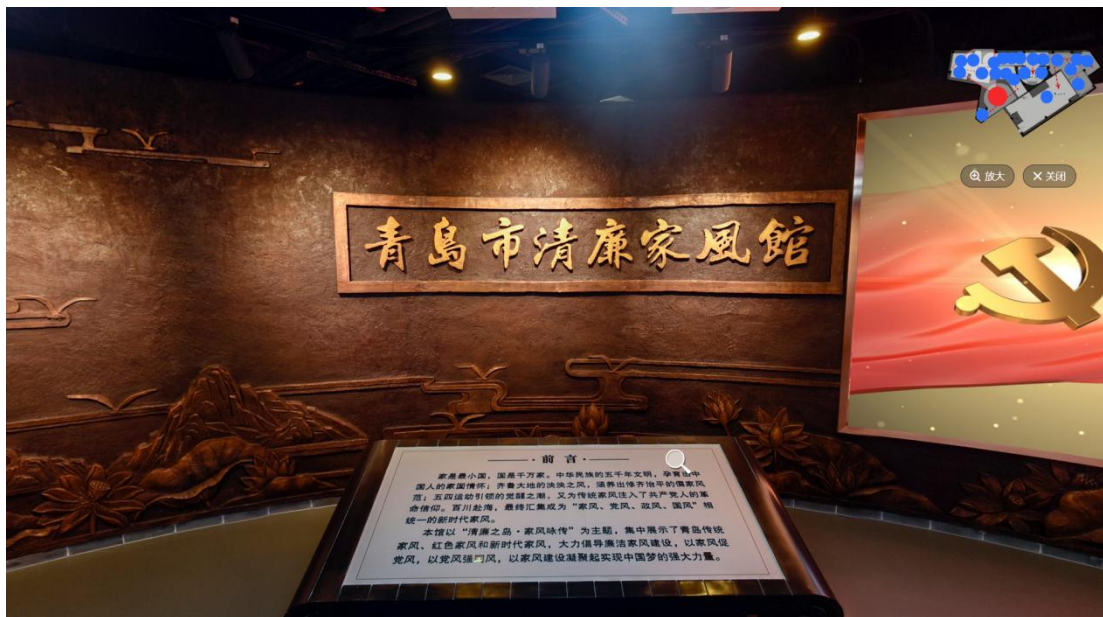 放大
关闭
青島市清廉家風館
前 言
家是最小国，国是千万家。中华民族的五千年文明，孕育出中
国人的家国情怀；齐鲁大地的泱泱之风，涵养出修齐治平的儒家风
范；五四运动引领的觉醒之潮，又为传统家风注入了共产党人的革
命信仰。百川赴海，最终汇集成为“家风、党风、政风、国风”相
统一的新时代家风。
本馆以“清廉之岛·家风咏传”为主题，集中展示了青岛传统
家风、红色家风和新时代家风，大力倡导廉洁家风建设，以家风促
党风，以党风强国风，以家风建设凝聚起实现中国梦的强大力量。